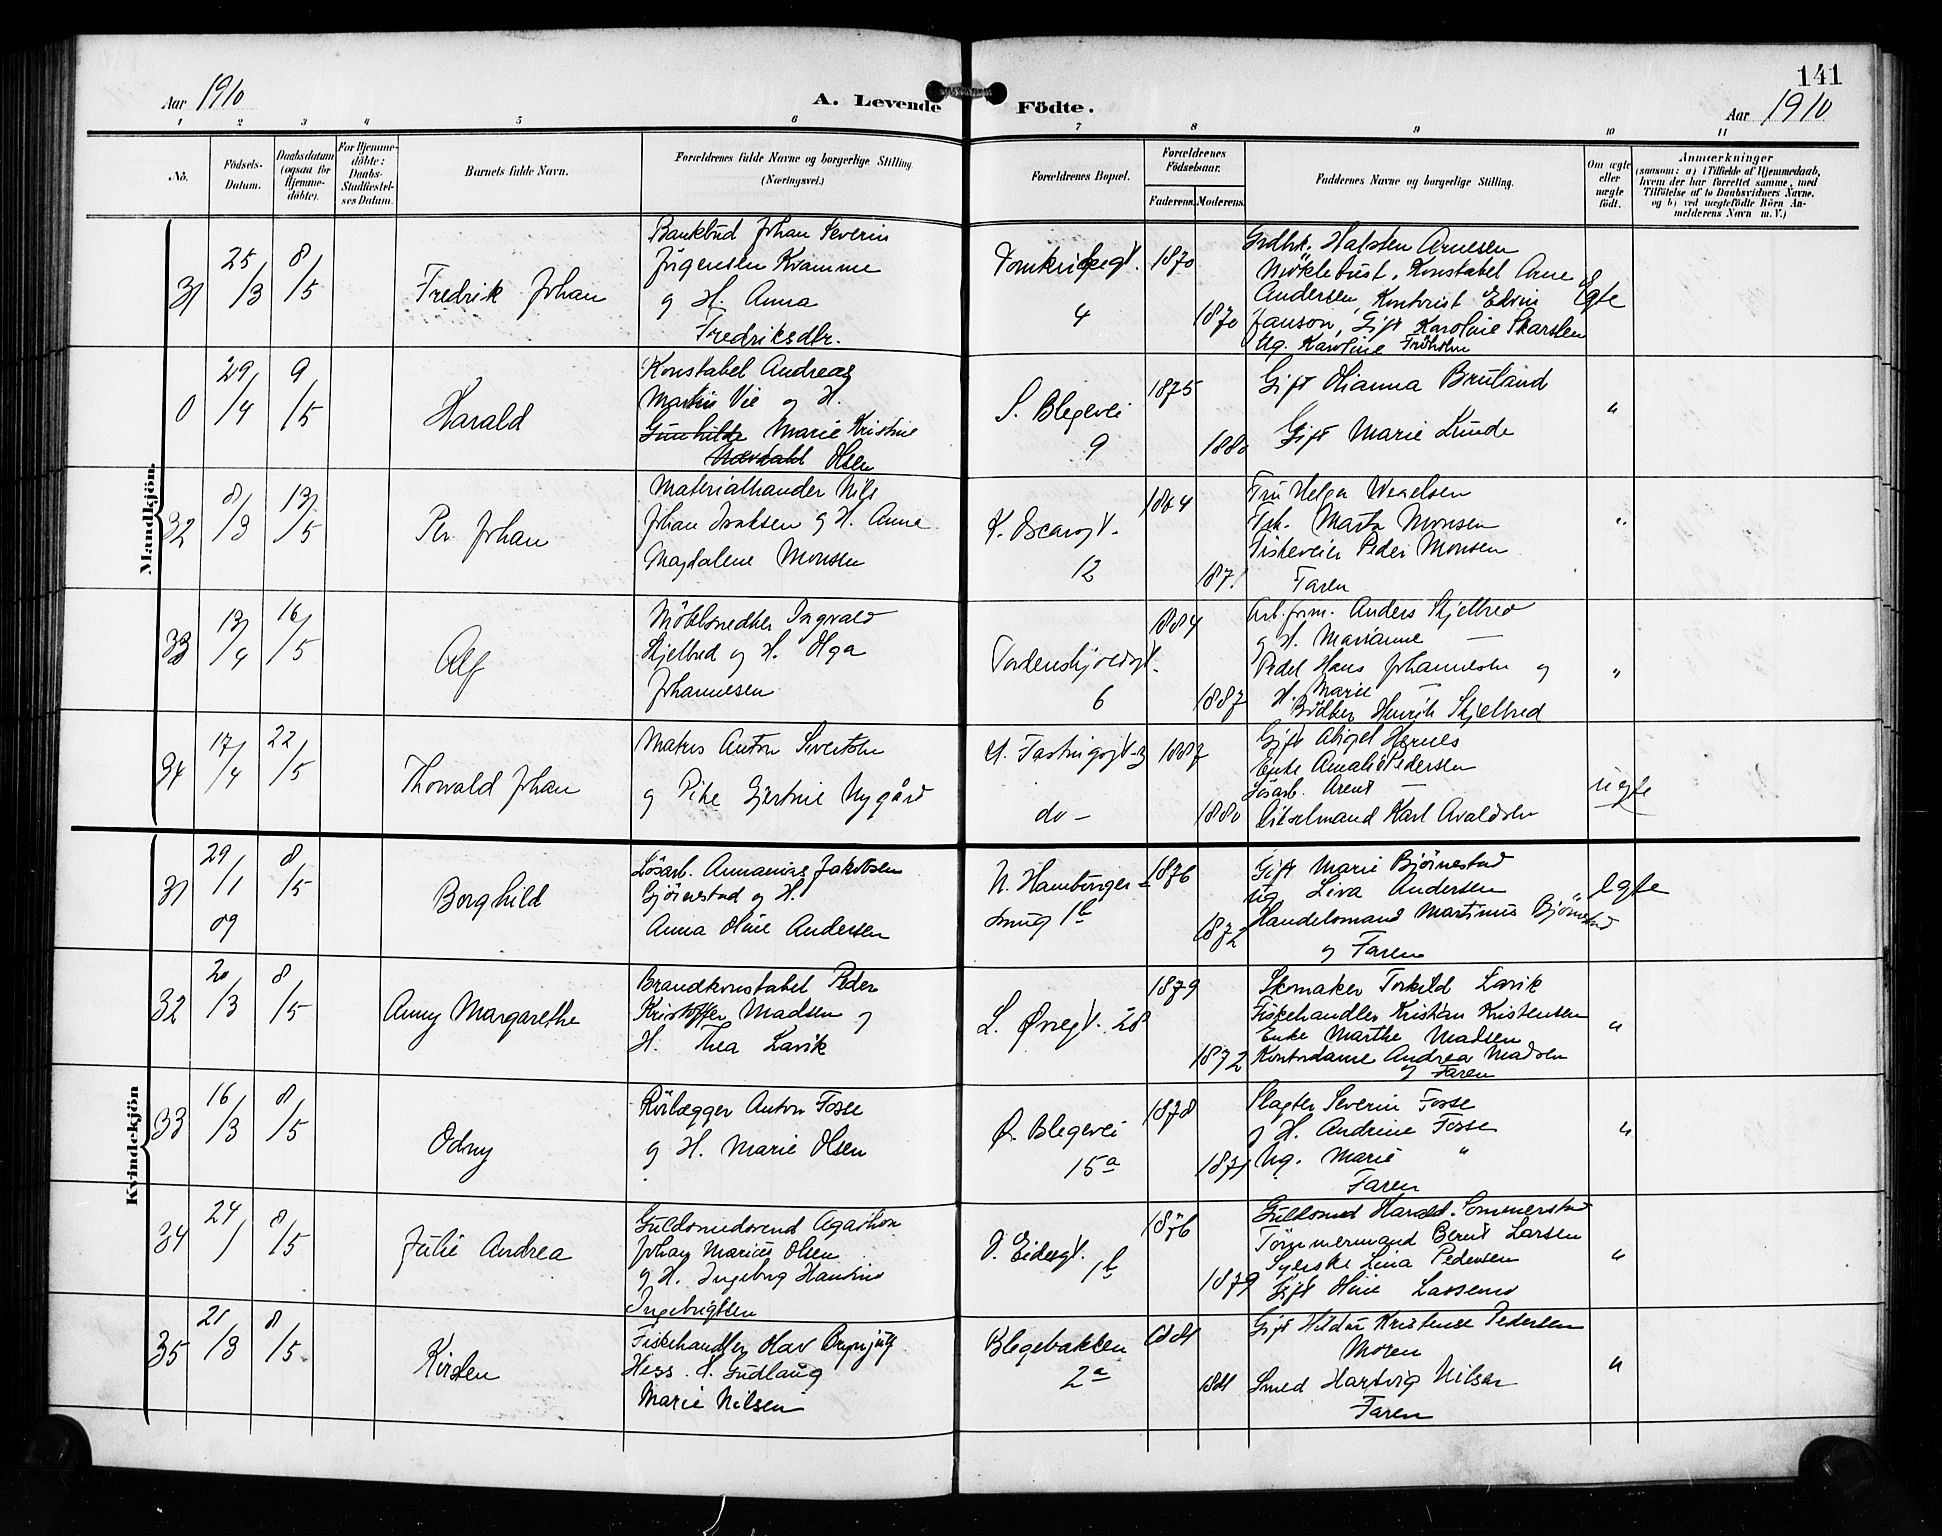 141
Aar 1910
A. Levende Födte.
Aar 1910
1 2 3 4 5 6 7 8 9 10 11
No.
Födsels-
Datum.
Daabsdatum
(ogsaa for
Hjemme-
döbte).
For Hjemme-
döbte:
Daabs-
Stadfæstel-
ses Datum.
Barnets fulde Navn.
Forældrenes fulde Navne og borgerlige Stilling.
(Næringsvei.)
Forældrenes Bopæl.
Forældrenes
Födselsaar.
Faderens. Moderens.
Faddernes Navne og borgerlige Stilling.
Om ægte
eller
uægte
födt.
Anmærkninger
(saasom: a) i Tilfælde af Hjemmedaab,
hvem der har forrettet samme, med
Tilföielse af to Daabsvidners Navne.
og b) ved uægtefödte Börn An-
melderens Navn m. V.)
Mandkjön.
31
25/3
8/5
Fredrik Johan
Bankbud Johan Severin
Jörgensen Kvamme
og H. Anna
Fredriksdtr.
Domkirkegt.
4
1870
1870
Halsten Arnesen
Konstabel Arne
Andersen, Kontorist
Janson, Gift Karoline Skarsten
Ug. Karoline
Egte
0
29/4
9/5
Harald
Konstabel Andreas
Martin Vie og H.
Gunhilde Marie Kristine
Olsen
S. Blegevei
9
1875
1880
Gift Hanna Bruland
Gift Marie Lunde
"
32
8/3
13/5
Per Johan
Materialhandler Nils
Johan Isaksen og H. Anna
Magdalene Monsen
K. Oscarsgt.
12
1864
187
Fru Helga
Marta Monsen
Peder Monsen
Faren
"
33
13/4
16/5
Alf
Ingvald
Skjelbred og H. Olga
Johannesen
Tordenskjoldsgt.
6
1884
1887
Arb.form. Anders Skjelbred
og H. Marianne —
Pedel Hans Johannesen og
H. Marie —
Bödker Henrik Skjelbred
"
34
17/4
22/5
Thorvald Johan
Matros Anton Sivertsen
og Pike Gjertine Nygård
do —
1887
1880
Gift Abigel Hernes
Enke Amalie Pedersen
Lösarb. Arent —
Karl Avaldsen
uegte
Kvindekjön
31
29/1
09
8/5
Borghild
Lösarb. Annanias Jakobsen
Bjørnestad og H.
Anna Oline Andersen
N. Hamburger-
smug 1b
1876
1872
Gift Marie Bjørnestad
Ug. Lina Andersen
Handelsmand Martinus Bjørnestad
og Faren
Egte
32
20/3
8/5
Anny Margarethe
Brandkonstabel Peder
Kristoffer Madsen og
H. Thea Lavik
L. Øvregt. 28
1879
1872
Skomaker Torkild Lavik
Fiskehandler Kristian Kristensen
Enke Marthe Madsen
Kontordame Andrea Madsen
og Faren
"
33
16/3
8/5
Odny
Rörlægger Anton Fosse
og H. Marie Olsen
Ø. Blegevei
15a
1878
1871
Slagter Severin Fosse
og H. Andrine Fosse
Ug. Marie "
Faren
"
34
24/1
8/5
Julie Andrea
Guldsmedsvend Agathon
Johan Marius Olsen
og H. Ingeborg Hansine
Ingebrigtsen
1b
1876
1879
Guldsmed Harald Sommerstad
Tömmermand Bernt Larsen
Syerske Lina Pedersen
Gift Oline
"
35
21/3
8/5
Kirsten
Fiskehandler Olav Brynjulf
Hess. H. Gudlaug
Marie Nilsen
Blegebakken
2a
Gift Hilda Kristense Pedersen
Moren
Smed Hartvig Nilsen
Faren
"